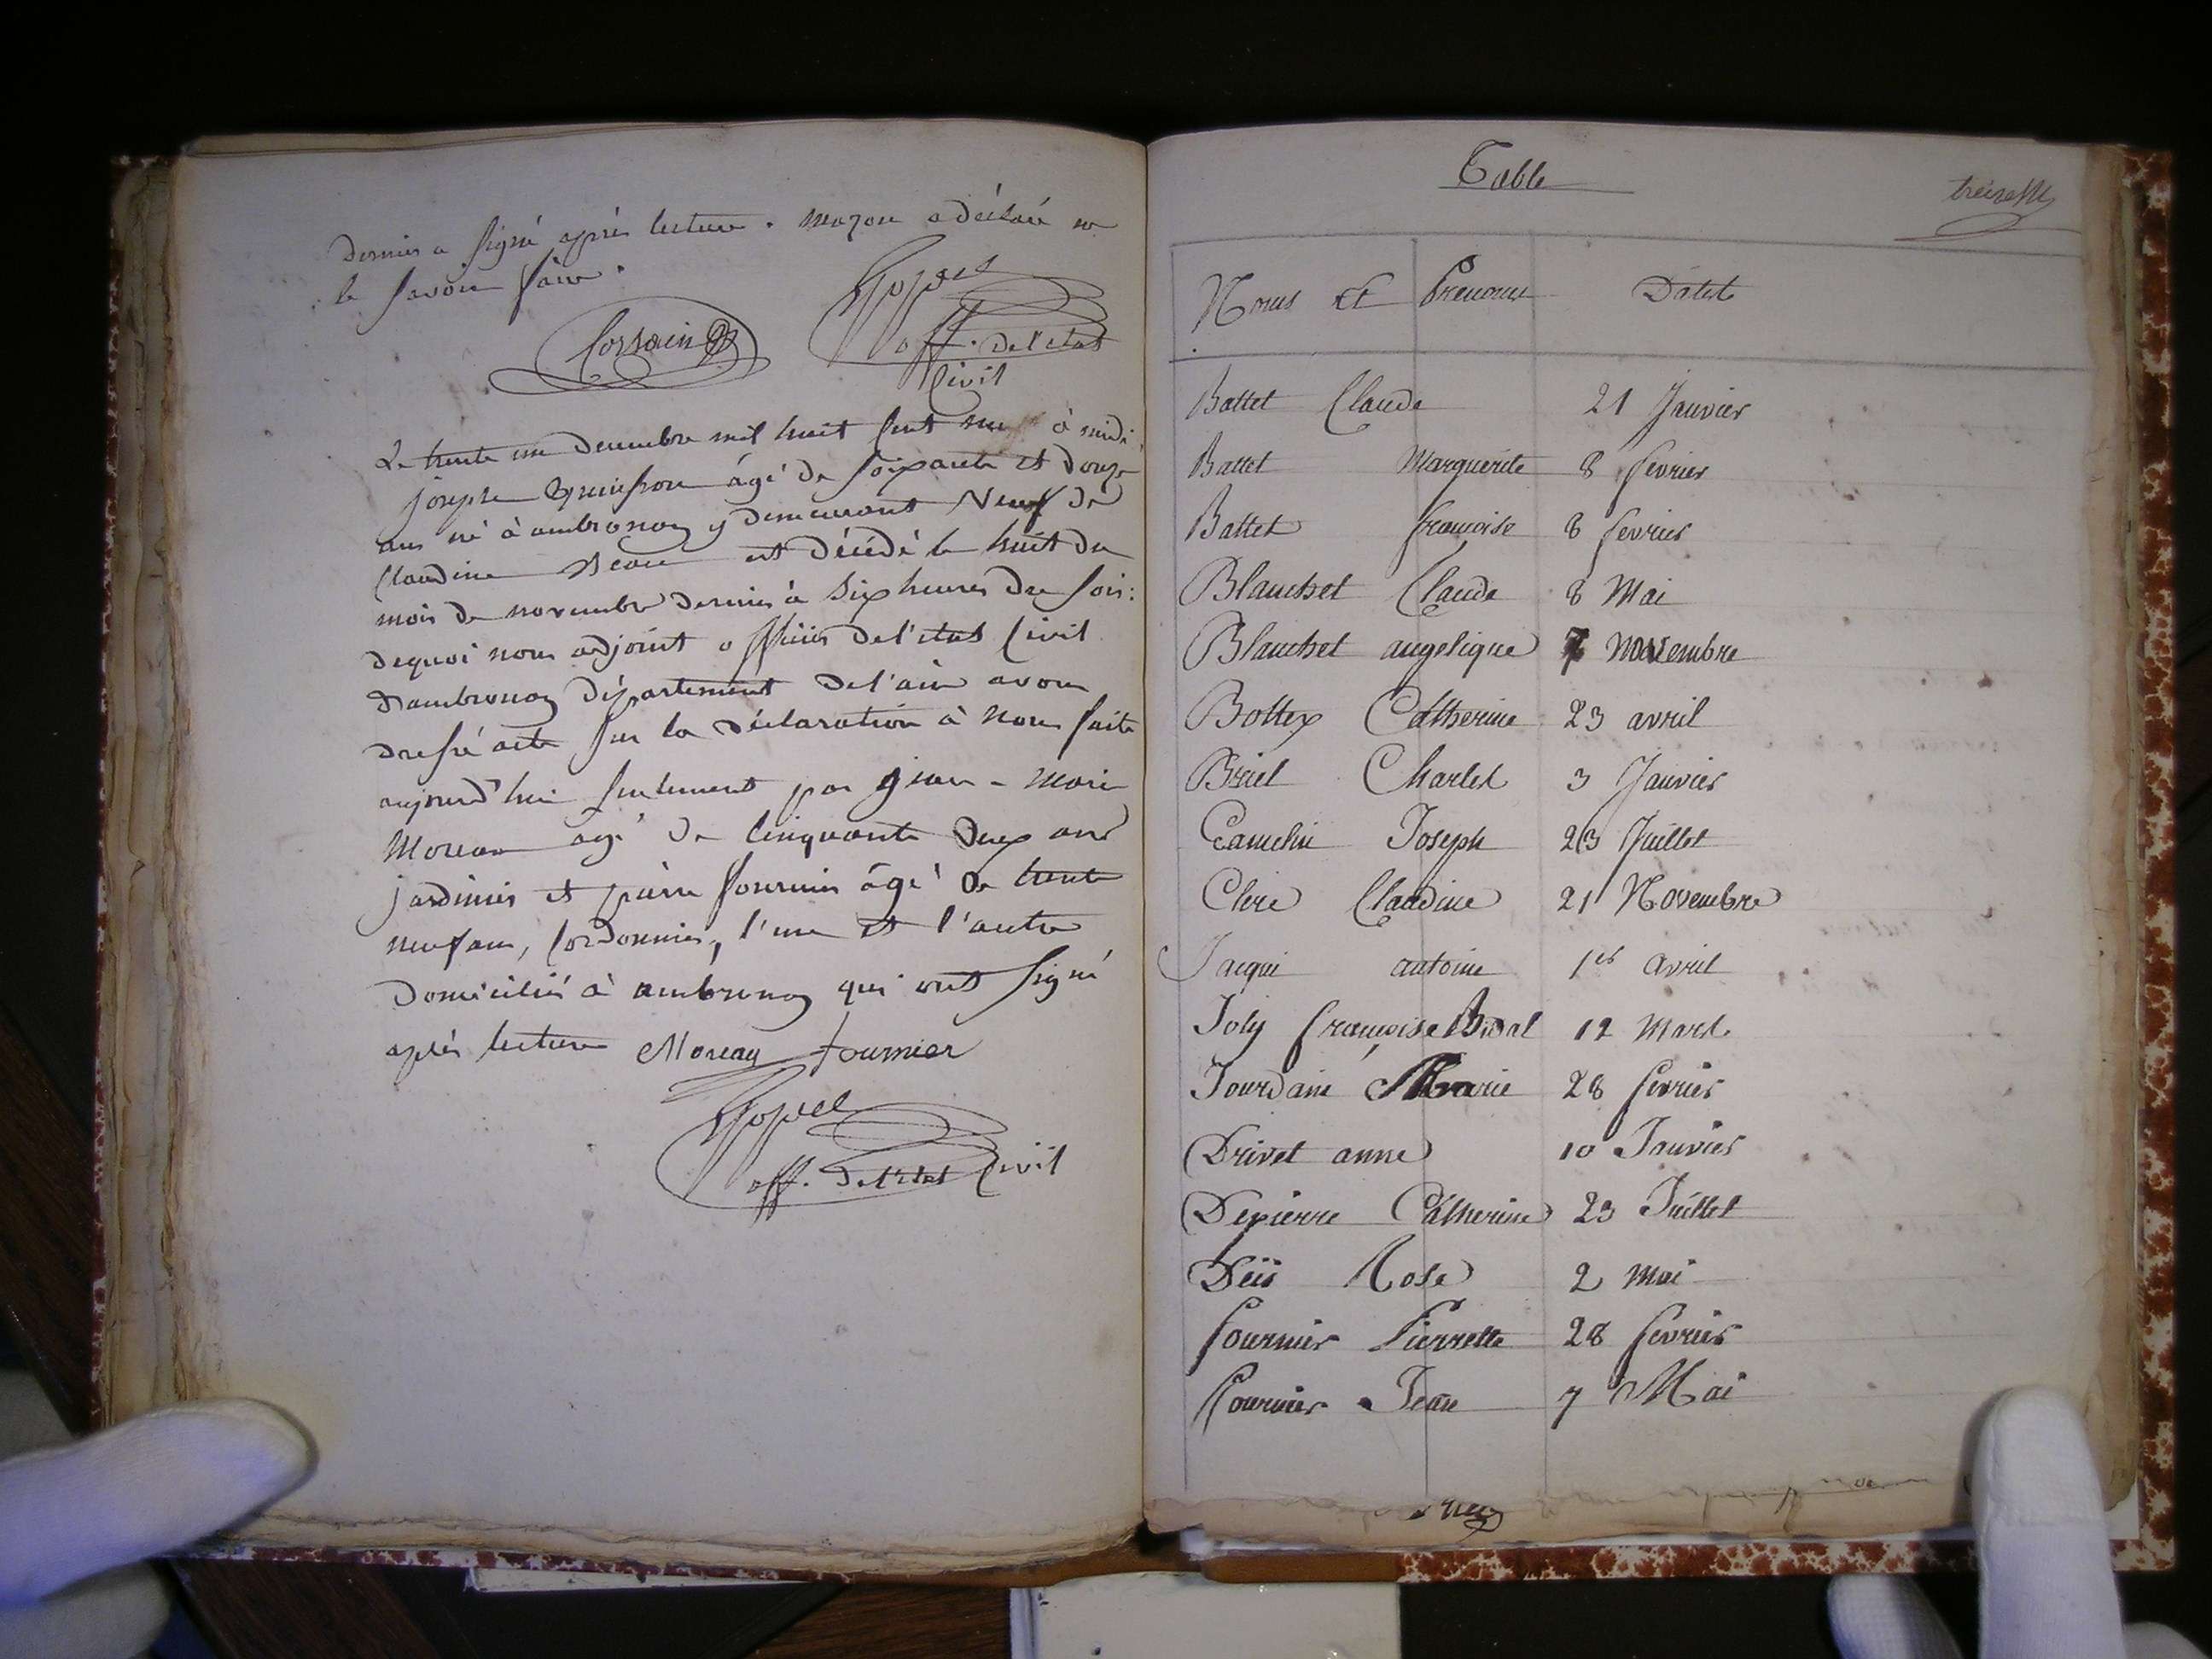 dernier a signé après lecture. mazou a déclaré ne
le savoir faire.
off. de l'etat
Civil
Le trente un decembre mil huit cent neuf à midi
joseph âgé de soixante et douze
ans né à ambronay y demeurant veuf de
Claudine est décédé le huit du
mois de novembre dernier à six heures du soir:
dequoi nous adjoint officier de l'etat Civil
d'ambronay département de l'ain avons
dressé acte sur la déclaration à nous faite
aujourd'hui seulement par jean-marie
Moreau agé de cinquante deux ans
jardinier et pierre fournier âgé de trente
neuf ans, cordonnier, l'un et l'autre
domiciliés à ambronay qui ont signé
après lecture Moreau fournier
off. de l'etat Civil
Table
treize
Noms et Prenoms Dates
Battet Claude 21 Janvier
Battet Marguerite 8 fevrier
Battet françoise 8 fevrier
Blanchet Claude 8 Mai
Blanchet angelique 7 Novembre
Bottex Catherine 23 avril
Briel Charles 3 Janvier
Joseph 23 Juillet
Clere Claudine 21 Novembre
Jacqui antoine 1er avril
Joly françoise 12 Mars
Jourdain Marie 28 fevrier
Drivet anne 10 Janvier
Depierre Catherine 23 Juillet
Rose 2 mai
fournier Pierrette 28 fevrier
fournier Jean 7 Mai